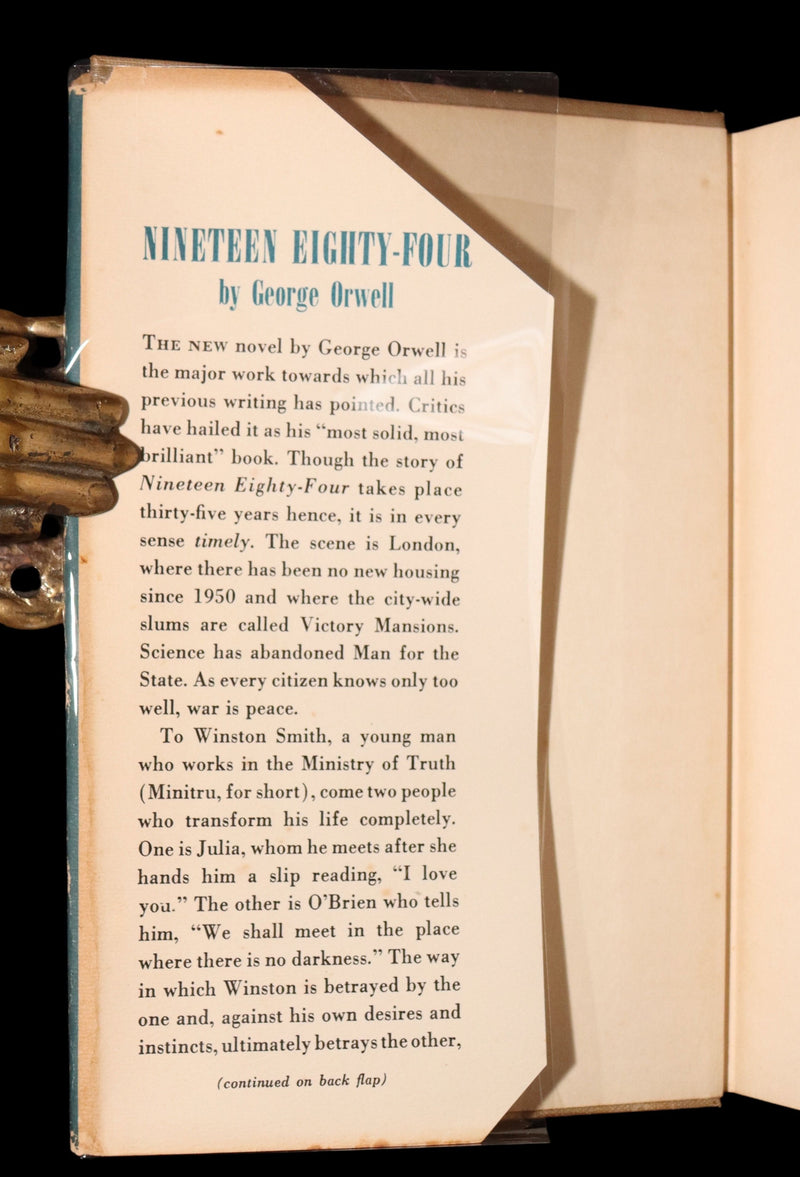 NINETEEN EIGHTY-FOUR
by George Orwell
THE NEW novel by George Orwell is
the major work towards which all his
previous writing has pointed. Critics
have hailed it as his “most solid, most
brilliant” book. Though the story of
Nineteen Eighty-Four takes place
thirty-five years hence, it is in every
sense timely. The scene is London,
where there has been no new housing
since 1950 and where the city-wide
slums are called Victory Mansions.
Science has abandoned Man for the
State. As every citizen knows only too
well, war is peace.
To Winston Smith, a young man
who works in the Ministry of Truth
(Minitru, for short), come two people
who transform his life completely.
One is Julia, whom he meets after she
hands him a slip reading, “I love
you.” The other is O’Brien who tells
him, “We shall meet in the place
where there is no darkness.” The way
in which Winston is betrayed by the
one and, against his own desires and
instincts, ultimately betrays the other,
(continued on back flap)